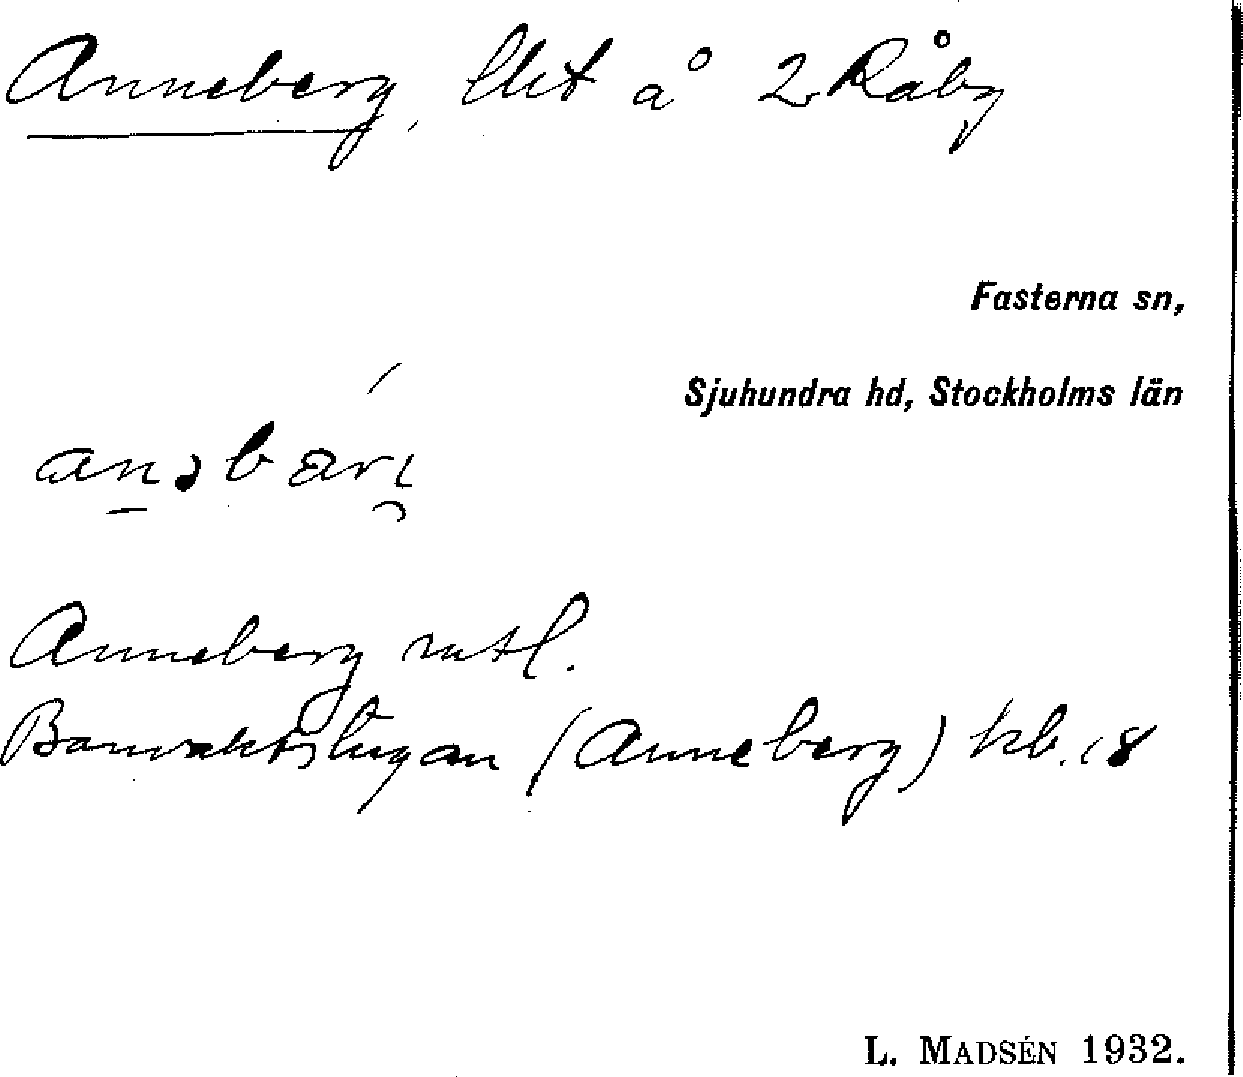 Anneberg, lht å 2 Råby
Fasterna sn,
Sjuhundra hd, Stockholms län
Anneberg mtl.
Banvaktstugan (Anneberg) kb. 18
L. MADSÉN 1932.